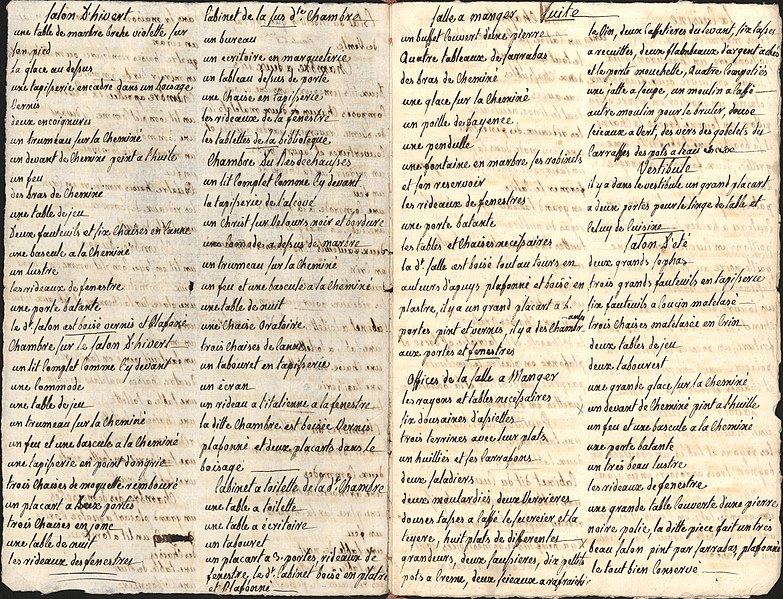 Salon D'hivert
une table de marbre breke violette sur
son pied
La glace au depus
une tapiperie encadré dans un boisage
Vernis
deux encoignures
un trumeau sur la Cheminé
un devant de Cheminé peint a l'huile
un feu
des bras de Cheminé
une table de jeu
Deux fauteuils et six Chaises en Canne
une bascule a la Cheminé
un lustre
les rideaux de fenestre
une porte batante
le dt Salon est boisé vernis et Plafoné
Chambre sur le Salon D'hivert
un lit Complet Comme Cy devant
une commode
une table de jeu
un trumeau sur la Cheminé
un feu et une bascule a la Cheminé
une tapiperie en point d'ongrie
trois Chaises de moquette rembouré
un placart a deux portes
trois Chaises en jonc
une table de nuit
les rideaux des fenestres
Cabinet de la sus dte Chambre
un bureau
un ecritoire en marqueterie
un tableau depus de porte
une Chaise en tapiperie
les rideaux de la fenestre
les tablettes de la biblioteque
Chambre du Resdechauses
un lit Complet Comme Cy devant
la tapiperie de l'alcove
un Christ sur Velours noir et bordure
une Comode a depus de marbre
un trumeau sur la Cheminé
un feu et une bascule a la Cheminé
une table de nuit
une Chaise Oratoire
trois Chaises de Canne
un tabouret en tapiperie
un écran
un rideau a l'italienne a la fenestre
la ditte Chambre est boisée Vernis
plafonné et deux placarts dans le
boisage
Cabinet a toilette de la dt Chambre
une table a toilette
une table a écritoire
un tabouret
un placart a 3. portes, rideaux de
fenestre, le dt Cabinet boisé en platre
et Plafonné
Salle a manger Suite
un buffet Couvert d'une pierre
Quatre tableaux de Sarrabas
des bras de Cheminé
une glace sur la Cheminé
un poille de fayence
une pendulle
une fontaine en marbre, ses robinets
et son reservoir
les rideaux de fenestres
une porte batante
les tables et Chaises necepaires
la dt Salle est boisé tout au tours en
auteurs d'apuys plafonné et boisé en
plastre, il y a un grand placart a 2.
portes pint et vernis, il y a des Chambranles
aux portes et fenestres
Offices de la salle a Manger
les rayons et tables necepaires
six dousaines d'apiettes
trois terrines avec leur plats
un huilliés et ses Carrafons
deux saladiers
deux moutardiés deux Verrieres
douses tapes a Caffé le sucrier et la
teyere, huit plats de differentes
grandeurs, deux saupieres, dix petits
pots a Creme, deux seieaux a rafraichir
le Vin, deux Caffetieres du levant, six tapes
a recuittes, deux flambeaux d'argent achés
et le porte mouchette, Quatre Compotiés
une jatte a soupe, un moulin a Caffé
autre moulin pour le bruler, douse
seieaux a Vert, des vers des gobelets des
Carraffes des pots a leau
Vestibule
il y a dans le vestibule un grand placart
a deux portes pour le linge de table et
Celuy de Cuisine
Salon D'été
deux grands sophas
trois grands fauteuils en tapiperie
six fauteuils a Coucin matelasé
trois Chaises matelasée en Crin
deux tables de jeu
deux tabourest
une grande glace sur la Cheminé
un devant de Cheminé pint a l'huille
un feu et une bascule a la Cheminé
une porte batante
un tres beau lustre
les rideaux de fenestre
une grande table Couverte d'une pierre
noire polie, la ditte piece fait un tres
beau Salon pint par Sarrabas plafonné
le tout bien Conservé